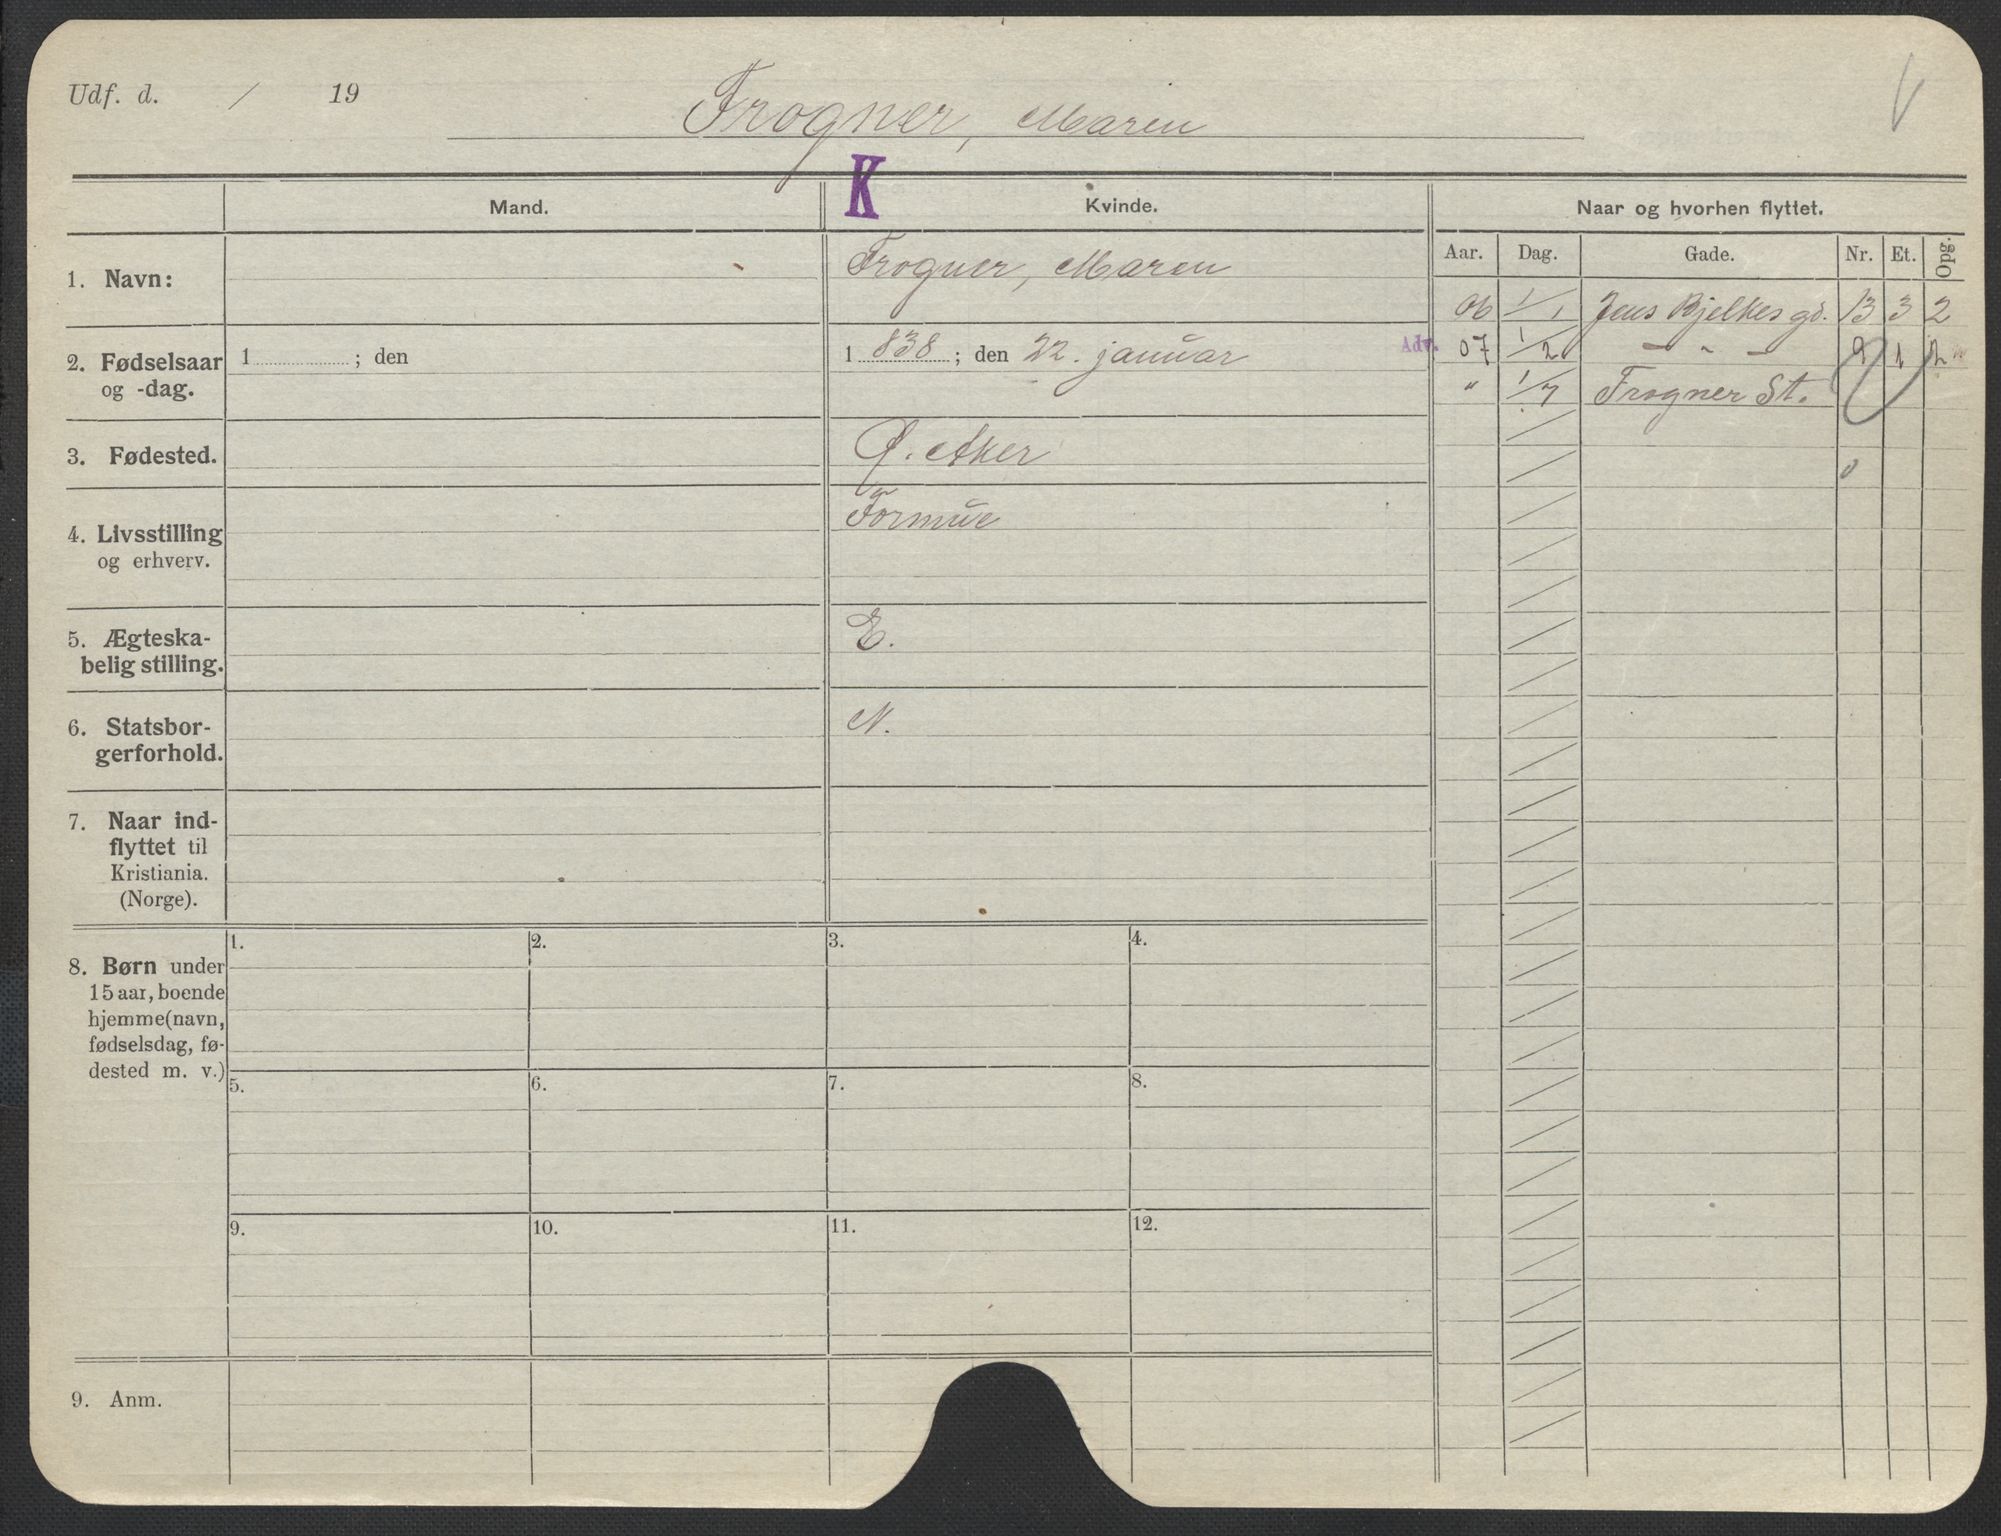 Udf. d. / 19
Frogner, Maren
K
Mand.
Kvinde.
Naar og hvorhen flyttet.
Aar. Dag. Gade. Nr. Et. Opg.
1. Navn:
Frogner, Maren
06 1/1 Jens Bjelkes gd. 13 3 2
2. Fødselsaar
og -dag.
1 ; den
1 838 ; den 22. januar
Adv. 07 1/2 — „ — 9 1 2
„ 1/7 Frogner St.
3. Fødested.
Ø. Aker
4. Livsstilling
og erhverv.
Formue
5. Ægteska-
belig stilling.
E.
6. Statsbor-
gerforhold.
N.
7. Naar ind-
flyttet til
Kristiania.
(Norge).
8. Børn under
15 aar, boende
hjemme (navn,
fødselsdag, fø-
dested m. v.)
1. 2. 3. 4.
5. 6. 7. 8.
9. 10. 11. 12.
9. Anm.